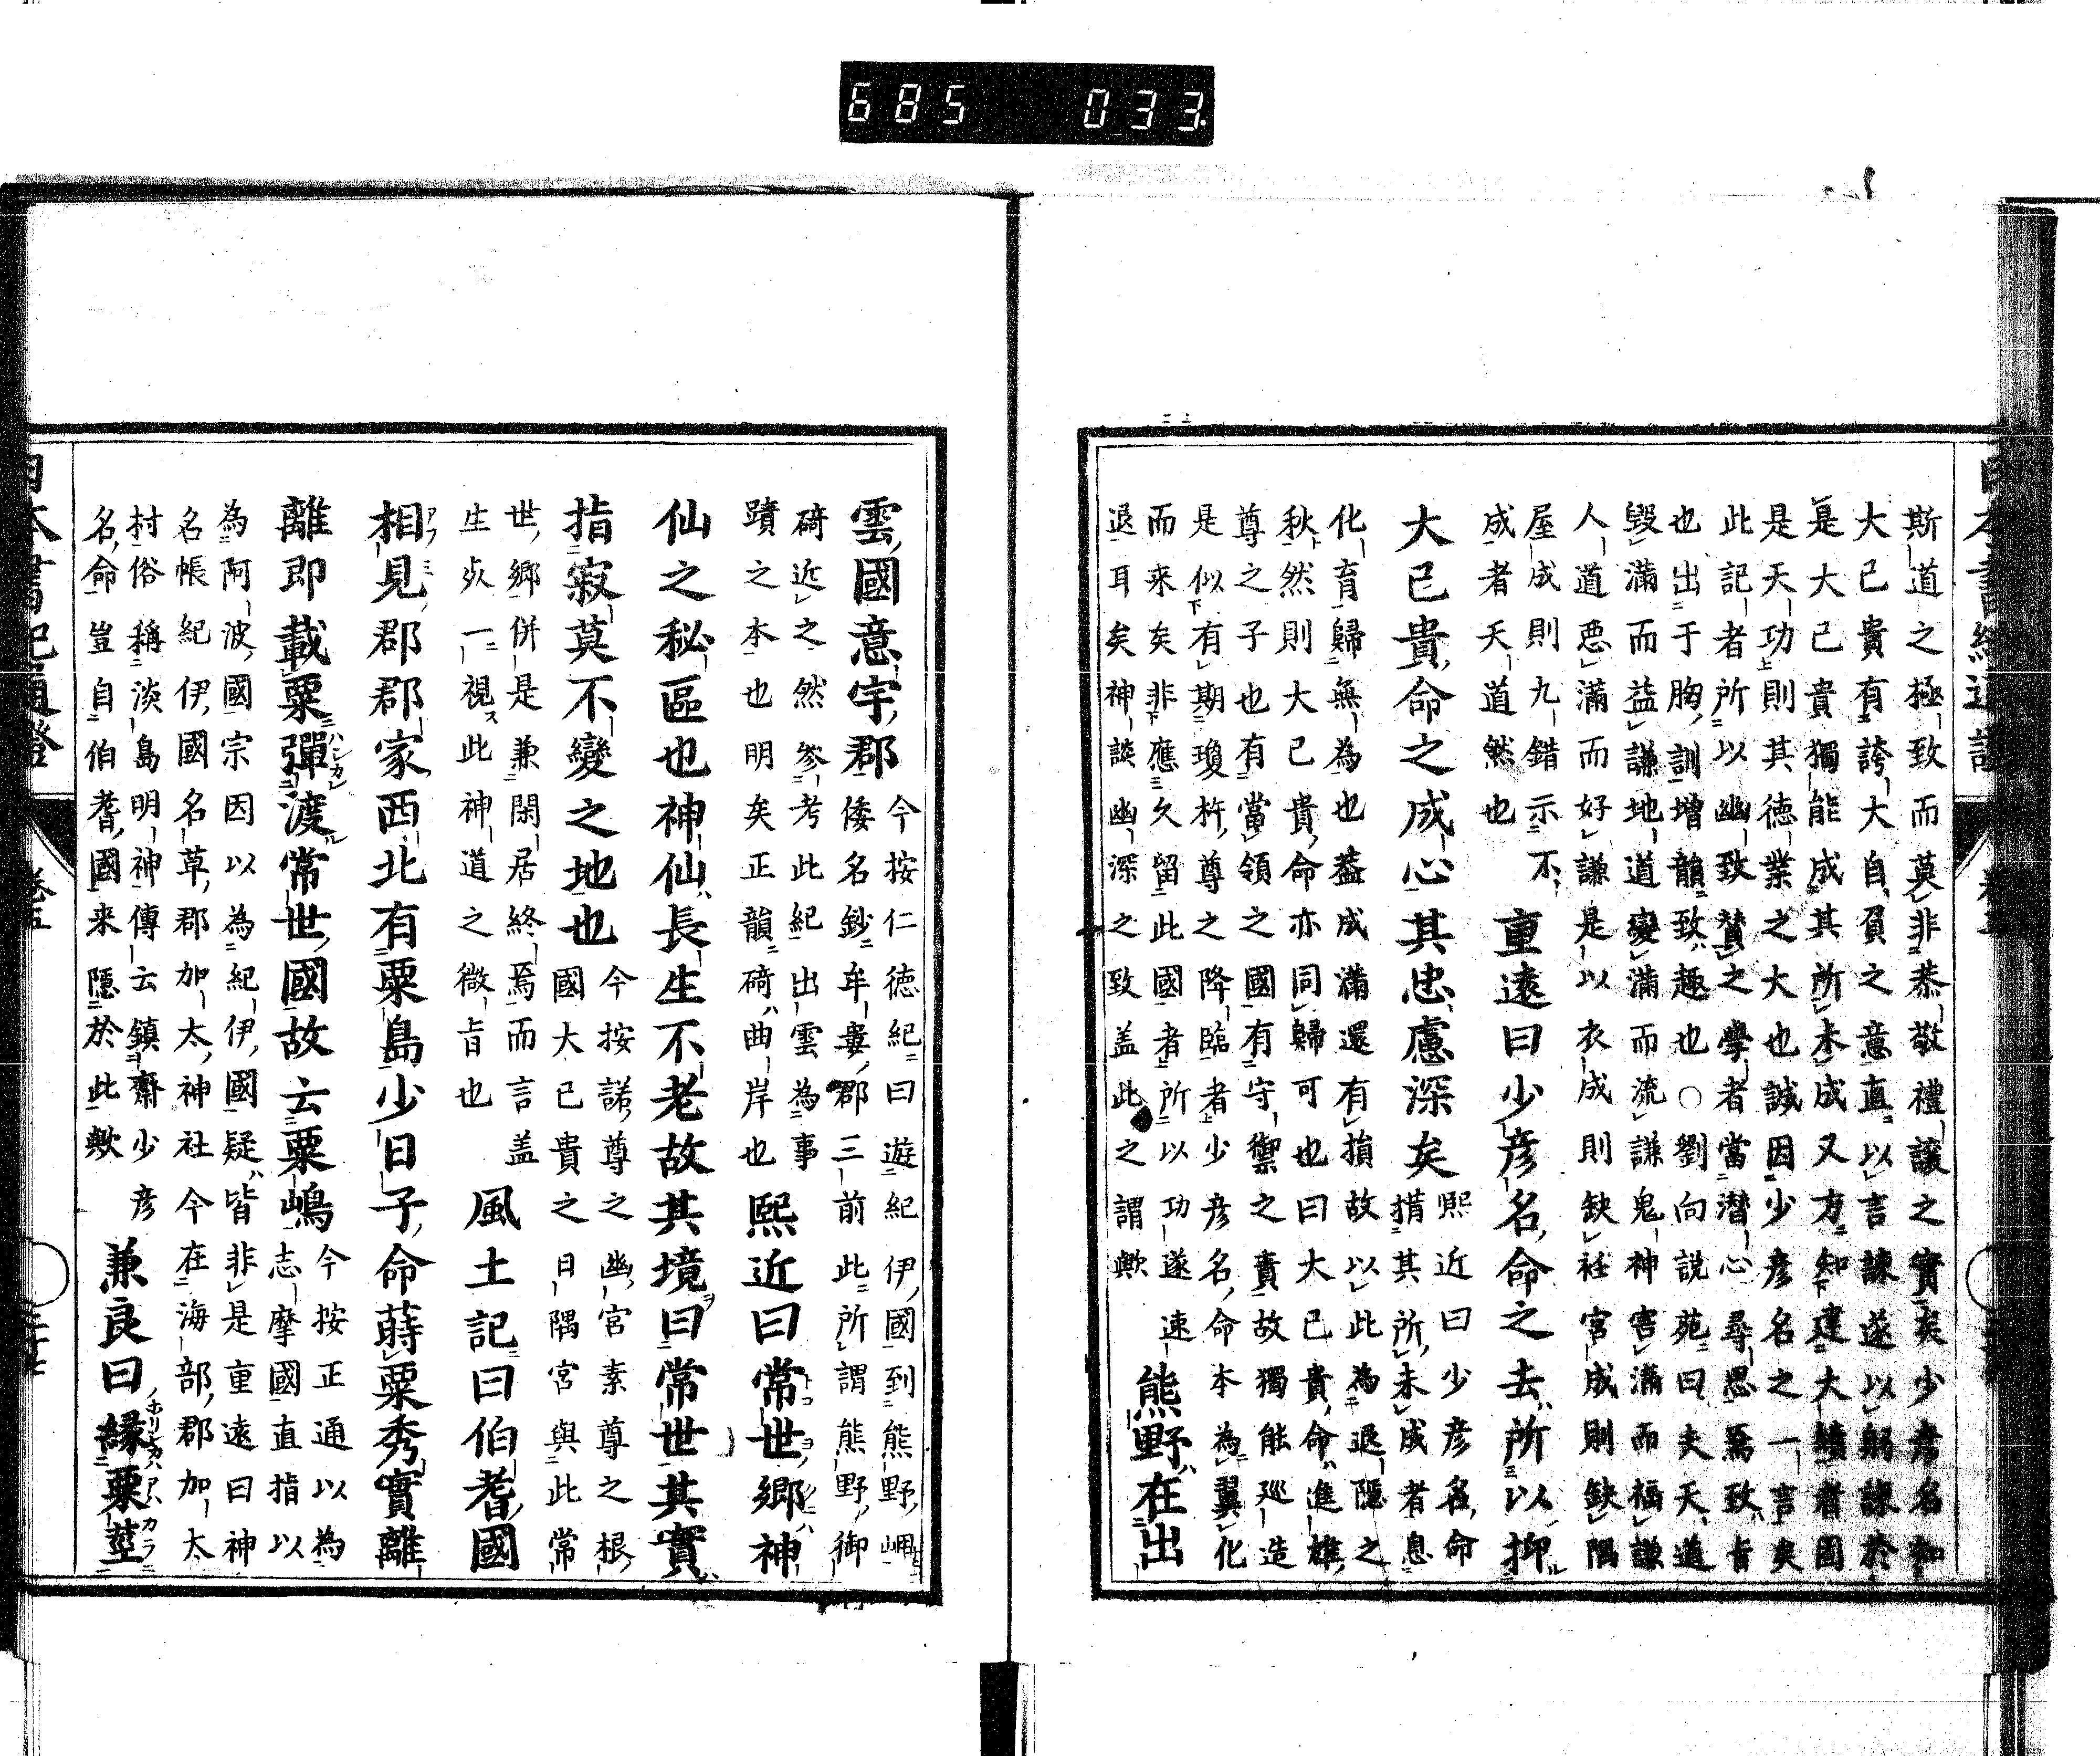 685 033
斯道之極致而莫非恭敬禮讓之實矣少彥名知
大己貴有誇大自負之意直以言諫遂以躬諫於
是大己貴獨能成其所未成又方知建大績者固
是天功則其德業之大也誠因少彥名之一言矣
此記者所以幽致賛之學者當潜心尋思焉致旨
也出于胸訓増韻致趣也○劉向説苑曰夫天道
毀滿而益謙地道變滿而流謙鬼神害滿而福謙
人道惡滿而好謙是以衣成則缺衽宮成則缺隅
屋成則九錯示不
成者天道然也
重遠曰少彥名命之去所以抑
大己貴命之成心其忠慮深矣
熙近曰少彥名命
揹其所未成者息
化育歸無為也葢成滿還有損故以此為退隱之
秋然則大己貴命亦同歸可也曰大己貴命進雄
尊之子也有當領之國有守禦之責故獨能廵造
是似有期瓊杵尊之降臨者少彥名命本為翼化
而来矣非應久留此國者所以功遂速
退耳矣神談幽深之致盖此之謂歟
熊野在出
雲國意宇郡
今按仁德紀曰遊紀伊國到熊野岬
倭名鈔牟婁郡三前此所謂熊野御
碕近之然參考此紀出雲為事
蹟之本也明矣正韻碕曲岸也
熙近曰常世郷神
仙之秘區也神仙長生不老故其境曰常世其實
指寂莫不變之地也
今按諾尊之幽宮素尊之根
國大己貴之日隅宮與此常
世郷併是兼閑居終焉而言盖
生㱔一視此神道之微旨也
風土記曰伯耆國
相見郡郡家西北有粟島少日子命蒔粟秀實離
離即載粟彈渡常世國故云粟嶋
今按正通以為
志摩國直指以
為阿波國宗因以為紀伊國疑皆非是重遠曰神
名帳紀伊國名草郡加太神社今在海部郡加太
村俗稱淡島明神傳云鎮齋少彥
名命豈自伯耆國来隱於此歟
兼良曰縁粟莖